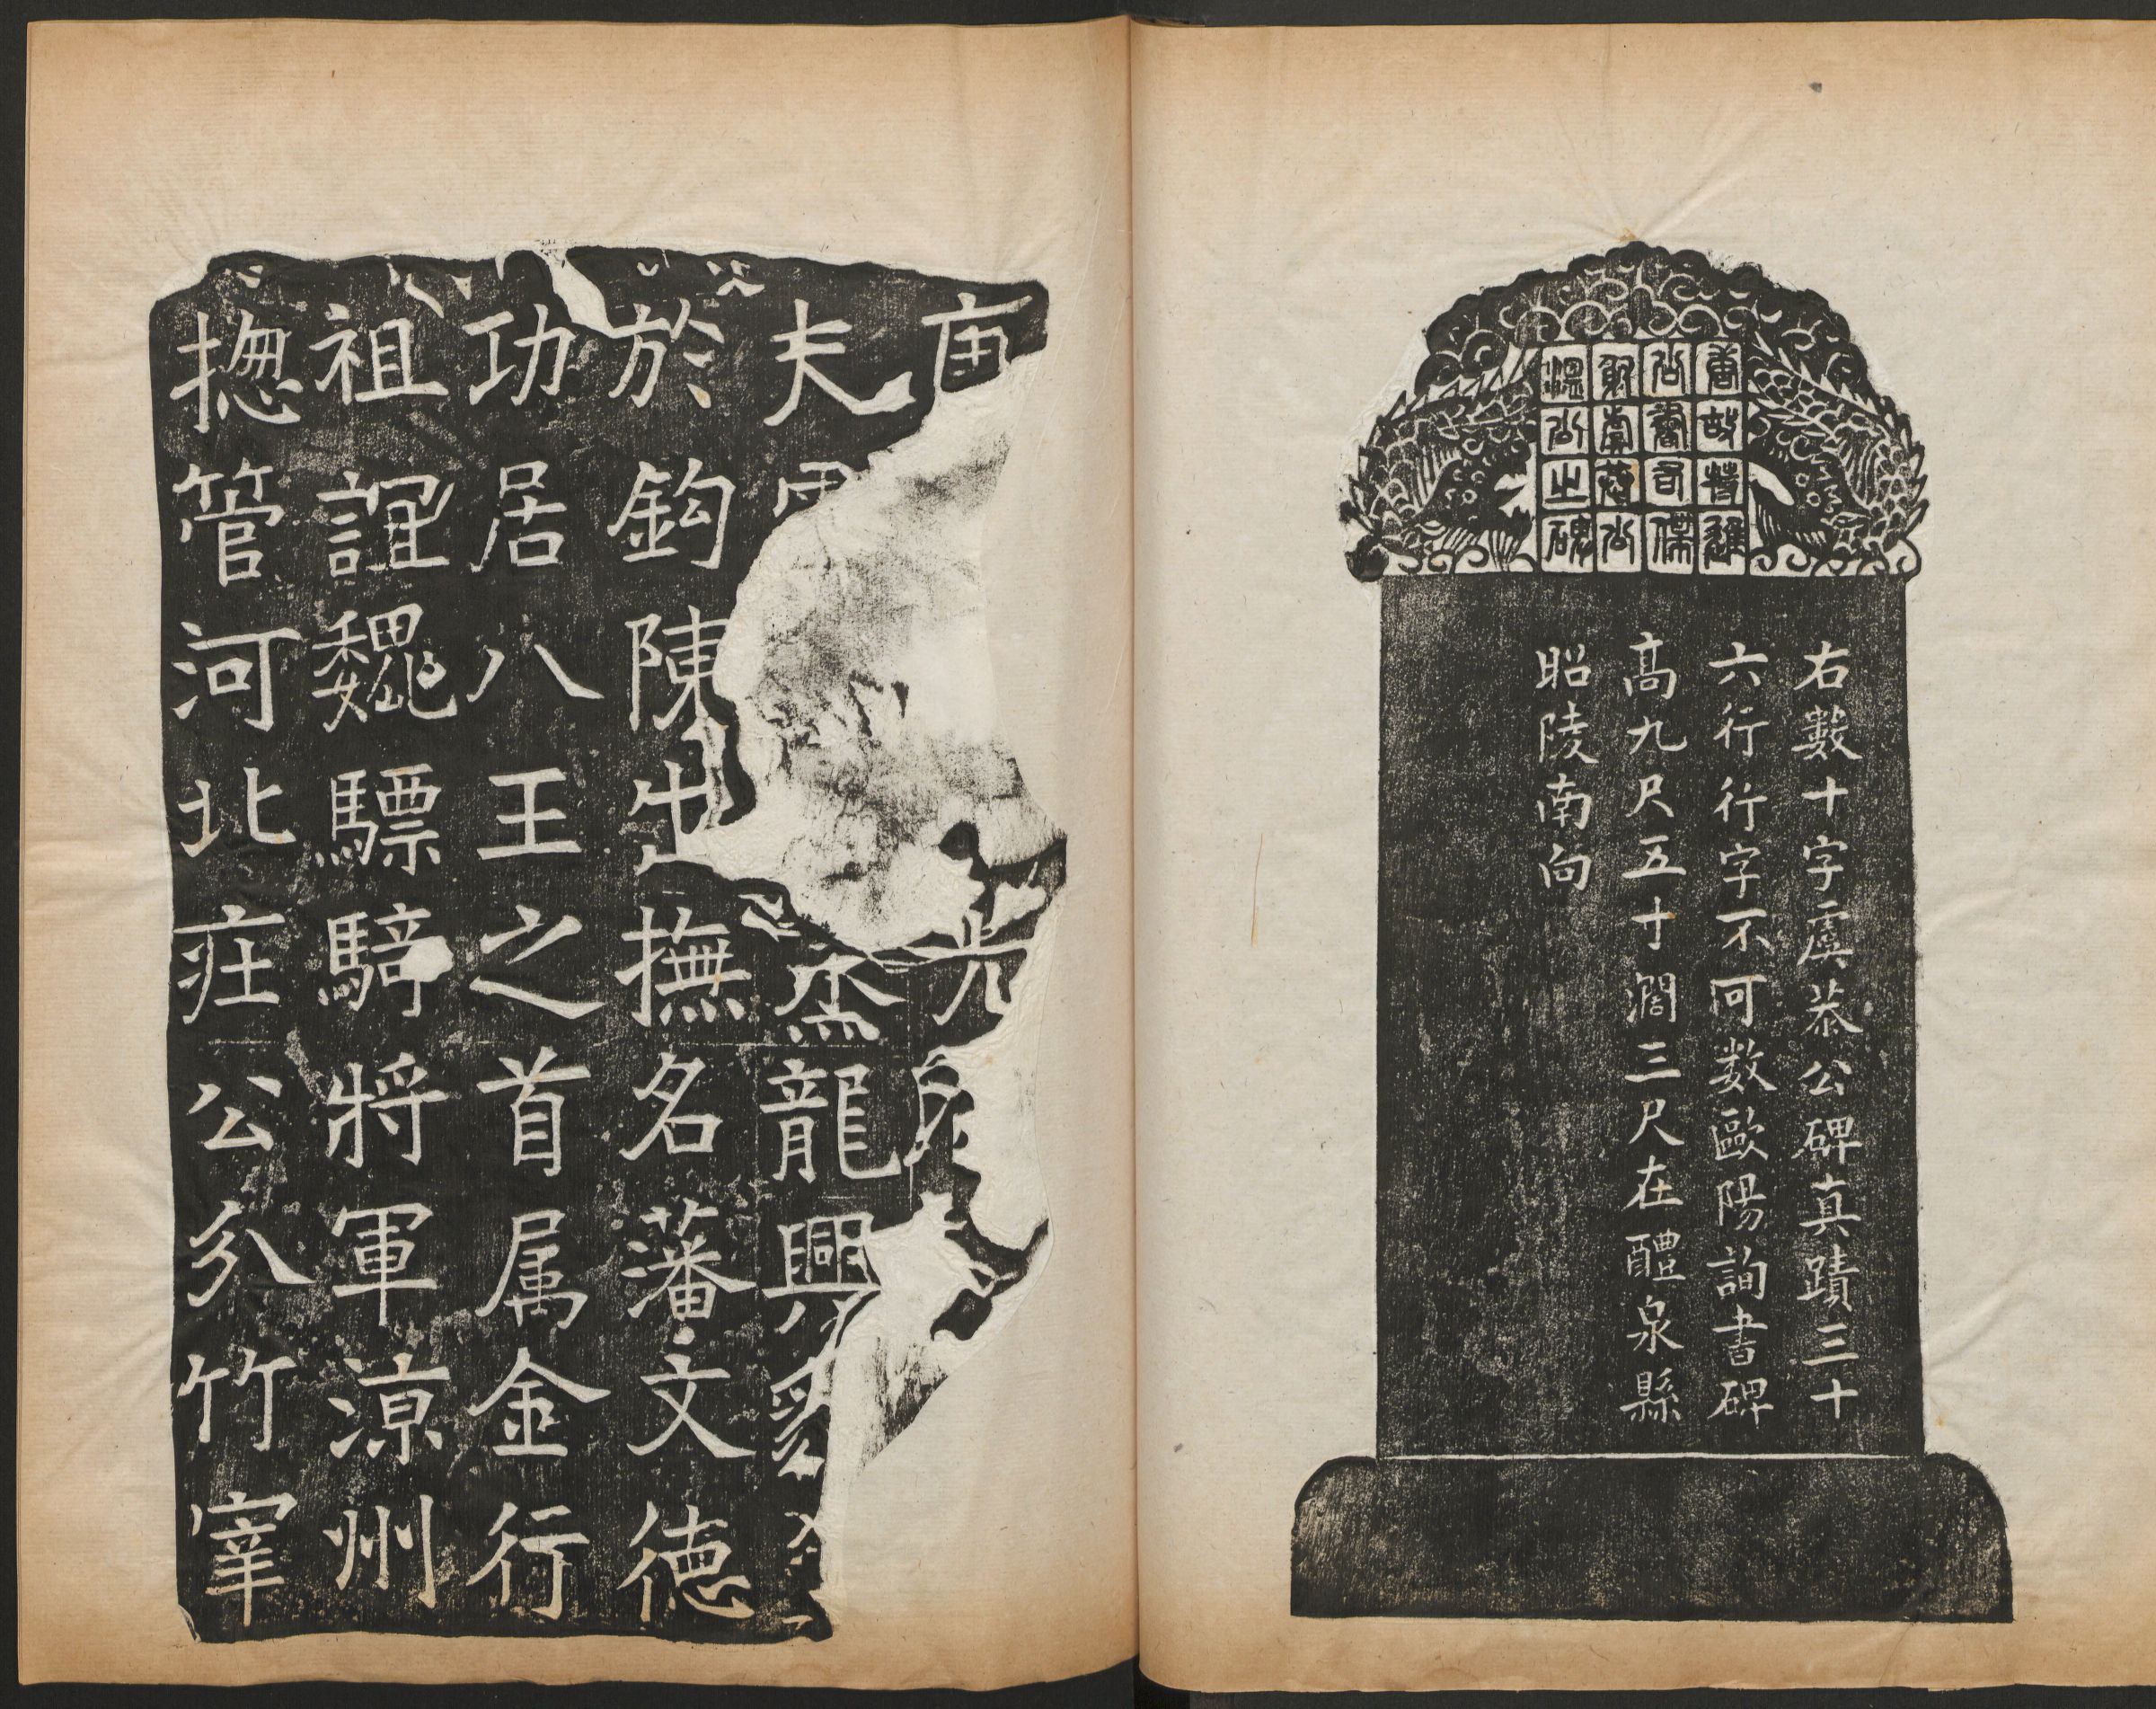 唐故特進
尚書右僕
射虞恭公
温公之碑
右數十字虞恭公碑真蹟三十
六行行字不可数歐陽詢書碑
高九尺五寸濶三尺在醴泉縣
昭陵南向
光
夫龍興
於鈎陳出撫名藩文徳
功居八王之首属金行
祖誼魏驃騎將軍涼州
揔管河北庄公分竹宰